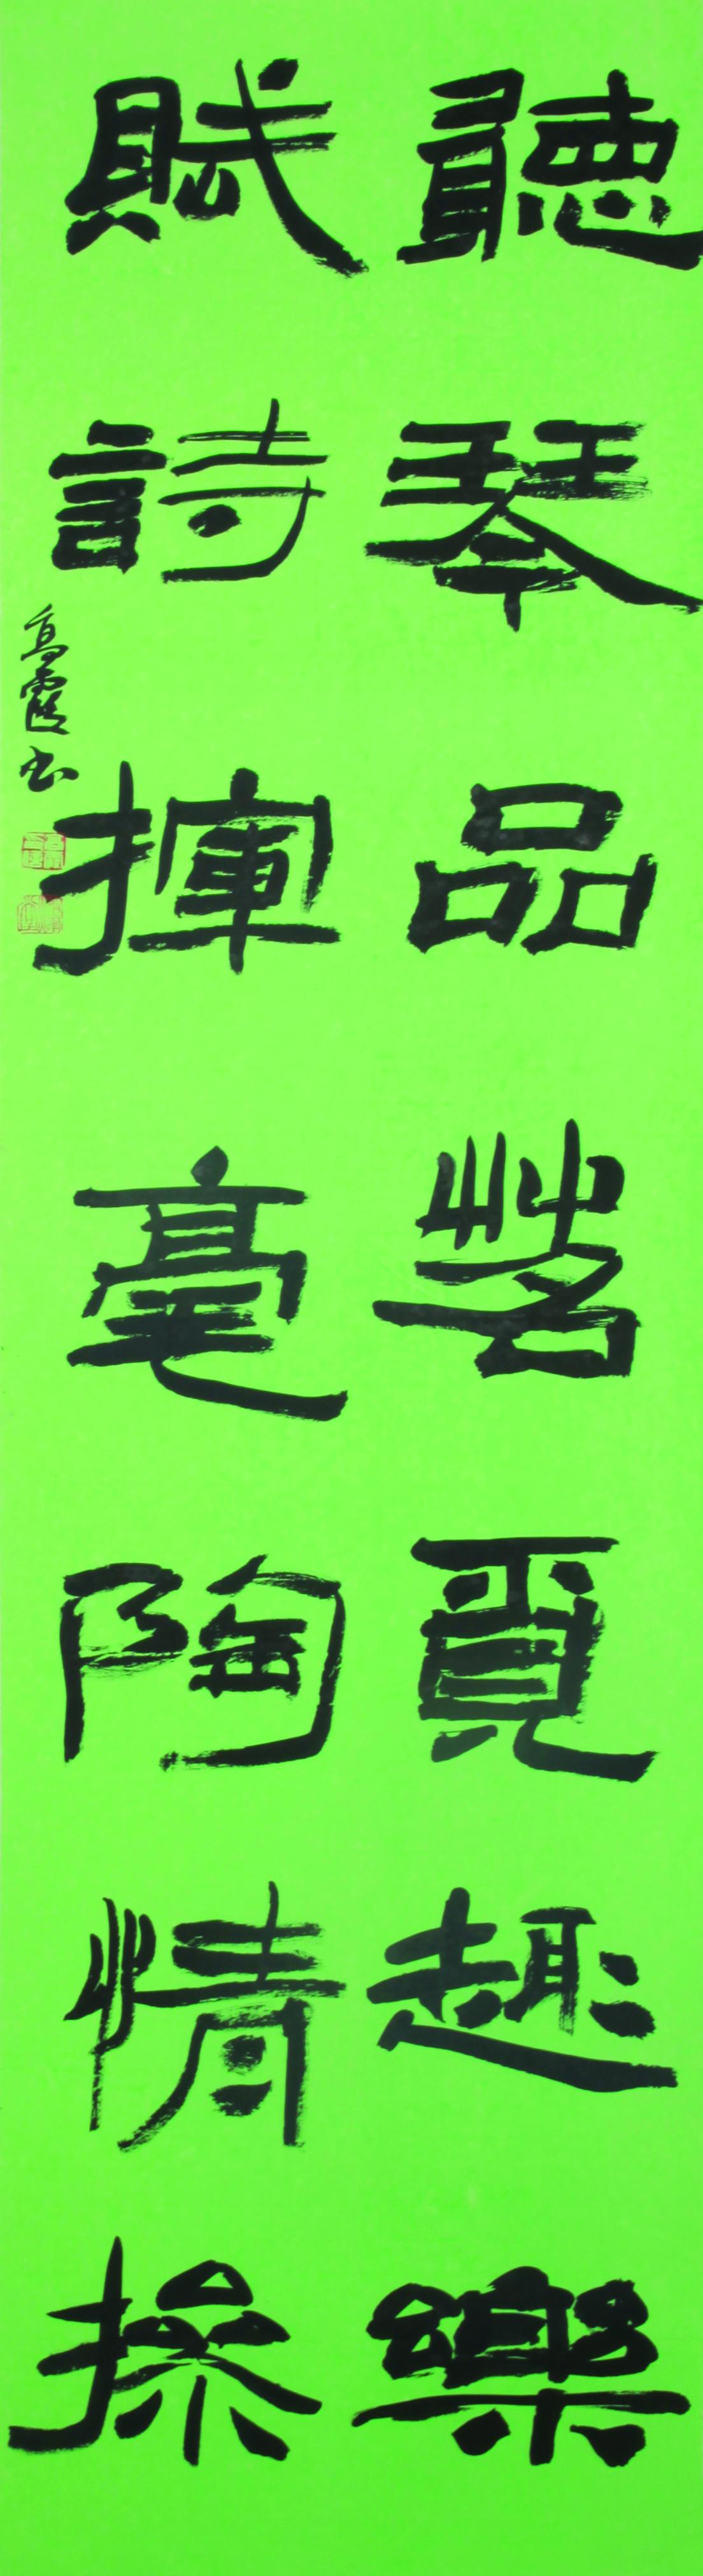 聽琴品茗覓趣樂
賦詩揮毫陶情操
高霞书